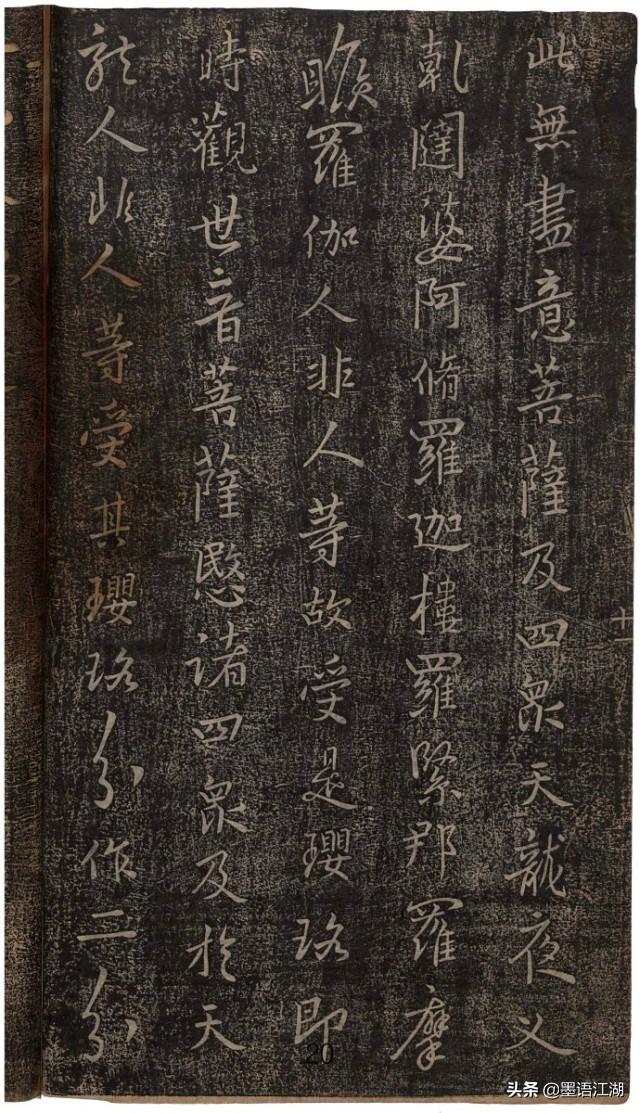 此無盡意菩薩及四眾天龍夜叉
乾闥婆阿脩羅迦樓羅緊那羅摩
睺羅伽人非人等故受是瓔珞即
時觀世音菩薩愍諸四眾及於天
龍人非人等受其瓔珞分作二分
十一
20
头条 @墨语江湖